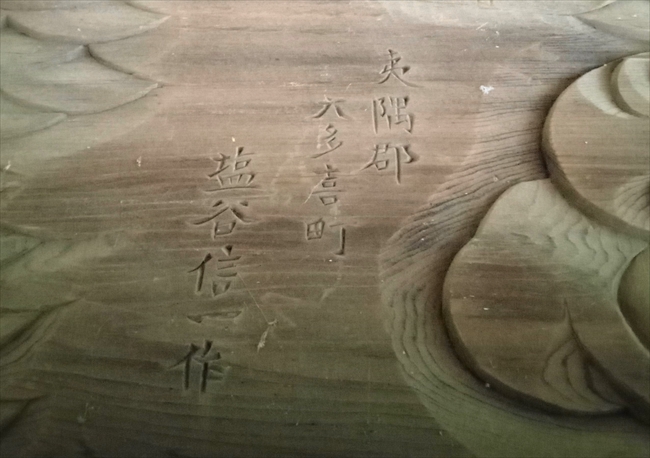 夷隅郡
大多喜町
塩谷信一作